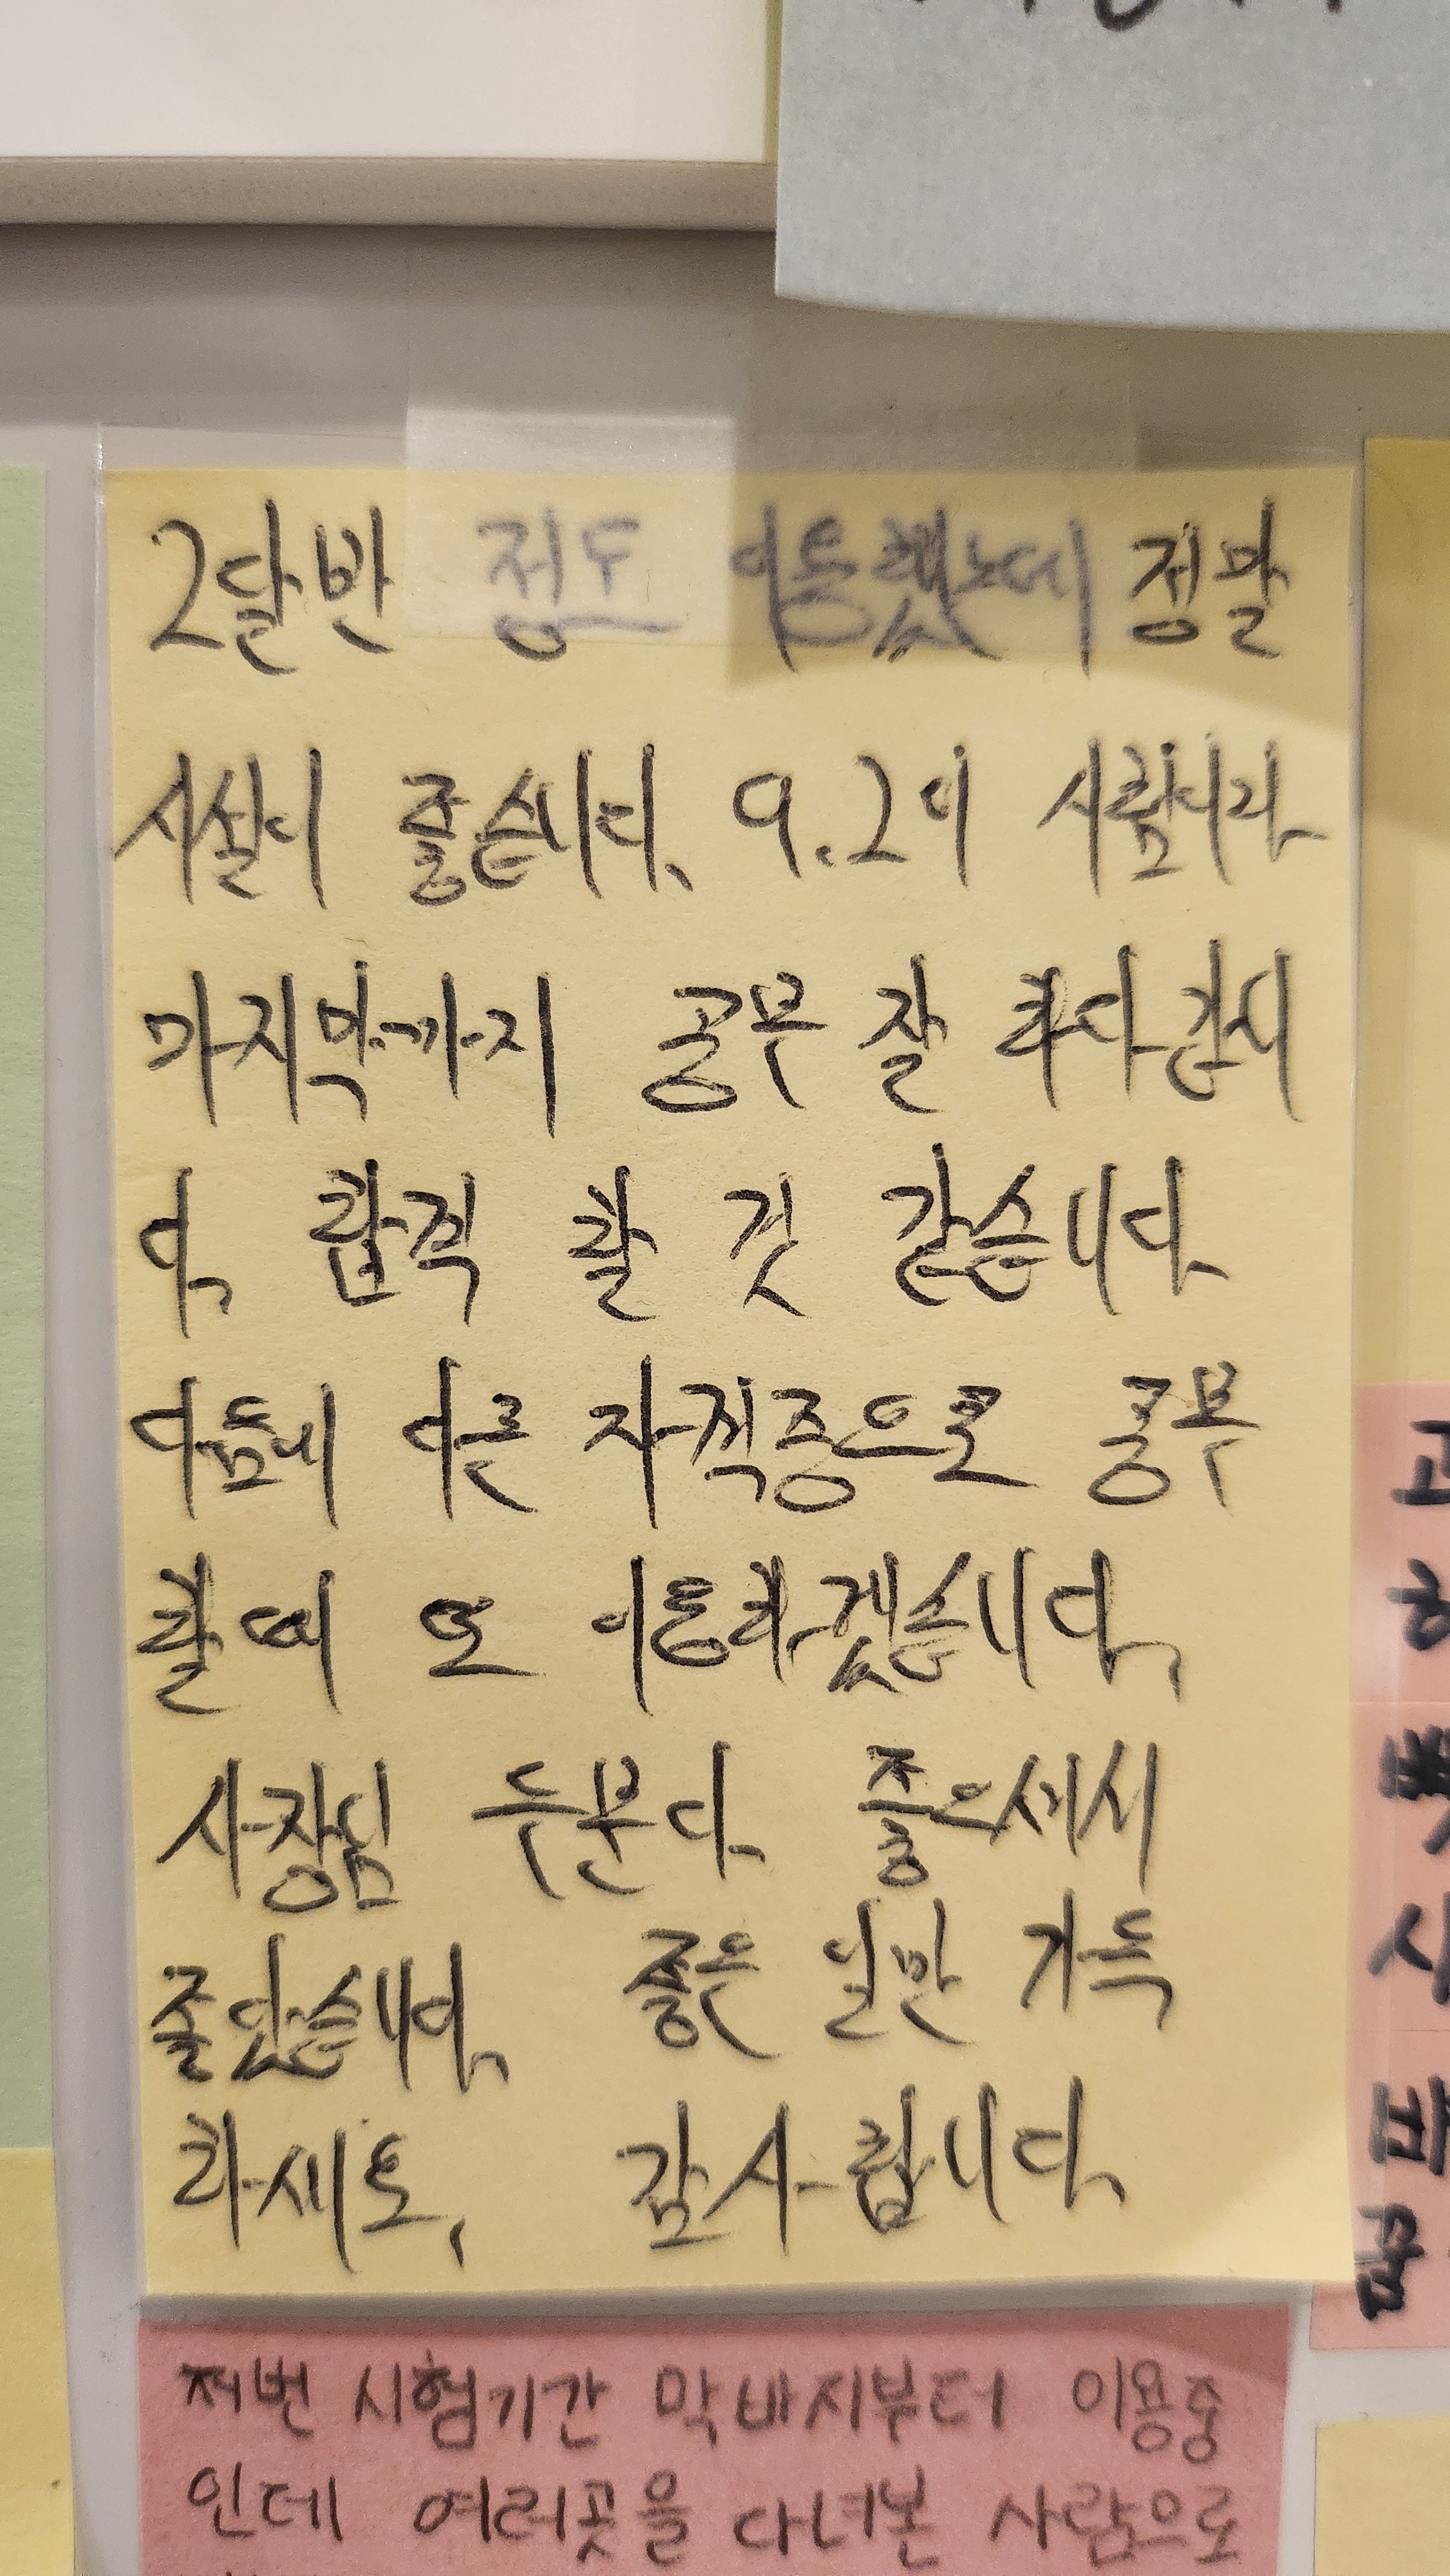 2달반 정도 이용했는데 정말
시설이 좋습니다. 9.2이 시험이라
마지막까지 공부 잘 하다 갑니
다. 합격 할 것 같습니다
다음에 다른 자격증으로 공부
할때 또 이용하겠습니다.
사장님 두분다 좋으셔서
좋았습니다. 좋은 일만 가득
하세요. 감사합니다.
저번 시험기간 막바지부터 이용중
인데 여러곳을 다녀본 사람으로